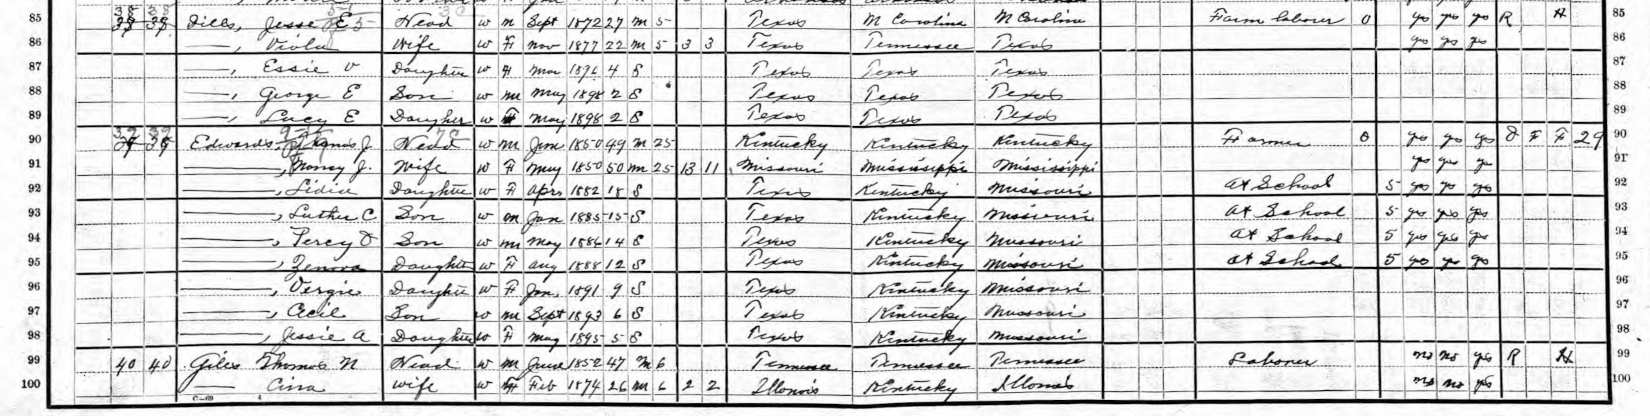 85 38 38 Dills, Jesse E Head W m Sept 1872 27 m 5 Texas N Carolina N Carolina Farm labour 0 yes yes yes R H 85
86 —, Viola Wife W F Nov 1877 22 m 5 3 3 Texas Tennessee Texas yes yes yes 86
87 —, Essie V Daughter W F Mar 1896 4 S Texas Texas Texas 87
88 —, George E Son W m May 1898 2 S Texas Texas Texas 88
89 —, Lucy E Daughter W F May 1898 2 S Texas Texas Texas 89
90 39 39 Edwards, J. Head W m Jun 1850 49 m 25 Kentucky Kentucky Kentucky Farmer 0 yes yes yes O F F 29 90
91 —, Nancy J. Wife W F May 1850 50 m 25 13 11 Missouri Mississippi Mississippi yes yes ye 91
92 —, Lidia Daughter W F Apr 1882 18 S Texas Kentucky Missouri At School 5 yes yes yes 92
93 —, Luther C Son W m Jan 1885 15 S Texas Kentucky Missouri At School 5 yes yes yes 93
94 —, Percy D Son W m May 1886 14 S Texas Kentucky Missouri At School 5 yes yes yes 94
95 —, Zenora Daughter W F Aug 1888 12 S Texas Kentucky Missouri At School 5 yes yes yes 95
96 —, Vergie Daughter W F Jan 1891 9 S Texas Kentucky Missouri 96
97 —, Cecil Son W m Sept 1893 6 S Texas Kentucky Missouri 97
98 —, Jessie A Daughter W F May 1895 5 S Texas Kentucky Missouri 98
99 40 40 Giles Thomas N Head W m June 1852 47 M 6 Tennessee Tennessee Tennessee Laborer no no yes R H 99
100 — Cina Wife W F Feb 1874 26 m 6 2 2 Illonois Kentucky Illonois no no yes 100